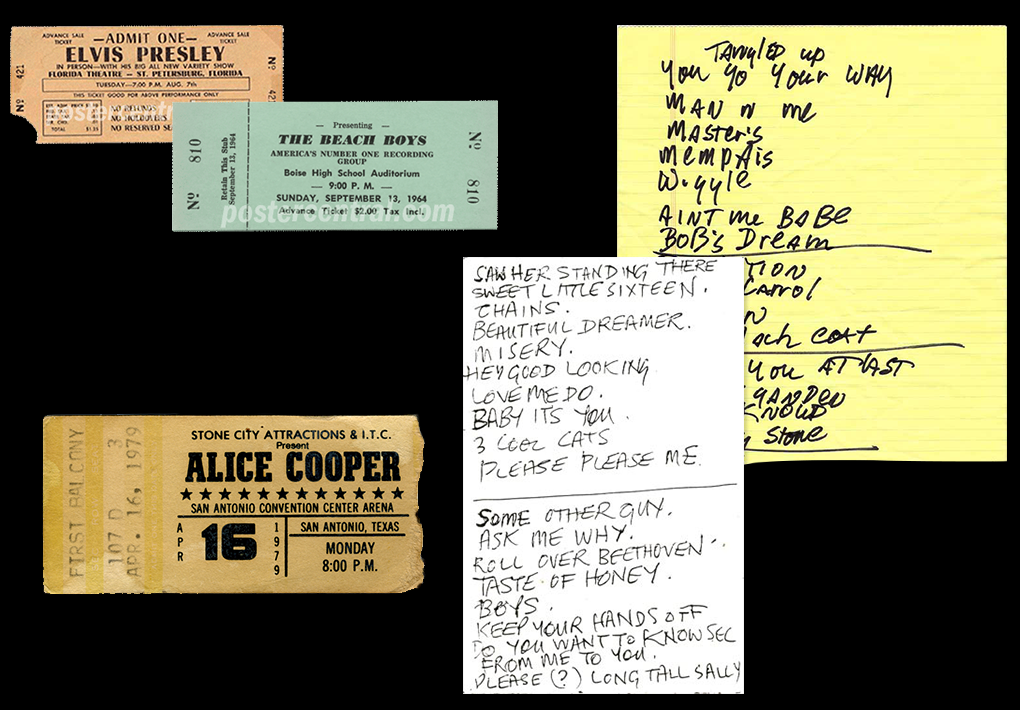 ADVANCE SALE TICKET
—ADMIT ONE—
ADVANCE SALE TICKET
ELVIS PRESLEY
IN PERSON—WITH HIS BIG ALL NEW VARIETY SHOW
FLORIDA THEATRE — ST. PETERSBURG, FLORIDA
TUESDAY—7:00 P.M. AUG. 7th
THIS TICKET GOOD FOR ABOVE PERFORMANCE ONLY
NO REFUNDS
NO HOLDOVERS
NO RESERVED SE
TOTAL $1.25
No 421
No 42
— Presenting —
THE BEACH BOYS
AMERICA'S NUMBER ONE RECORDING
GROUP
Boise High School Auditorium
— 9:00 P. M. —
SUNDAY, SEPTEMBER 13, 1964
Advance Ticket $2.00 Tax Incl.
No 810
Retain This Stub
September 13, 1964
No 810
postercentral.com
TANGlED up
you go your WAY
MAN n me
MASter's
MEMPhis
Wiggle
AINT me BABE
BOB's DReam
TION
CARROl
N
ach COAT
you AT LAST
GARDEN
KNOWD
STONE
SAW HER STANDING THERE
SWEET LITTLE SIXTEEN.
CHAINS.
BEAUTIFUL DREAMER.
MISERY.
HEY GOOD LOOKING
LOVE ME DO.
BABY ITS YOU.
3 COOL CATS
PLEASE PLEASE ME.
SOME OTHER GUY.
ASK ME WHY.
ROLL OVER BEETHOVEN.
TASTE OF HONEY.
BOYS.
KEEP YOUR HANDS OFF
DO YOU WANT TO KNOW SEC
FROM ME TO YOU.
PLEASE (?) LONG TALL SALLY
FIRST BALCONY
107 D 3
APR. 16, 1979
STONE CITY ATTRACTIONS & I.T.C.
Present
ALICE COOPER
SAN ANTONIO CONVENTION CENTER ARENA
APR
16
1979
SAN ANTONIO, TEXAS
MONDAY
8:00 P.M.